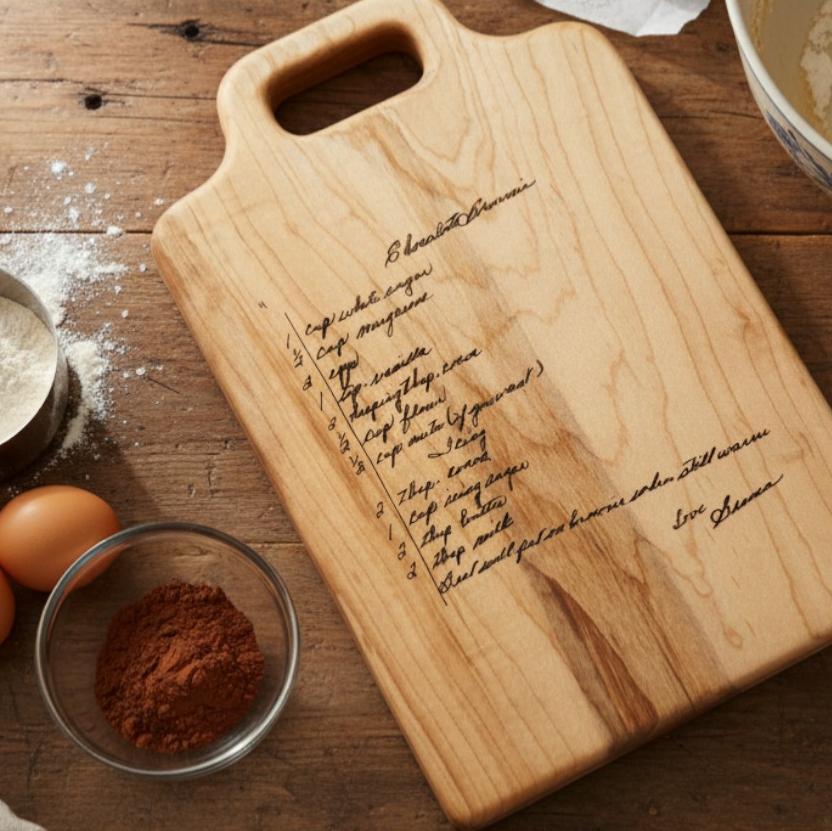 Chocolate Brownie
1 cup white sugar
1/2 cup margarine
2 eggs
1 tsp. vanilla
2 heaping tbsp. cocoa
1/2 cup flour
1/3 cup nuts (if you want)
Icing
2 tbsp. cocoa
1 cup icing sugar
2 tbsp butter
2 tbsp milk
Beat well put on brownie when still warm
Love